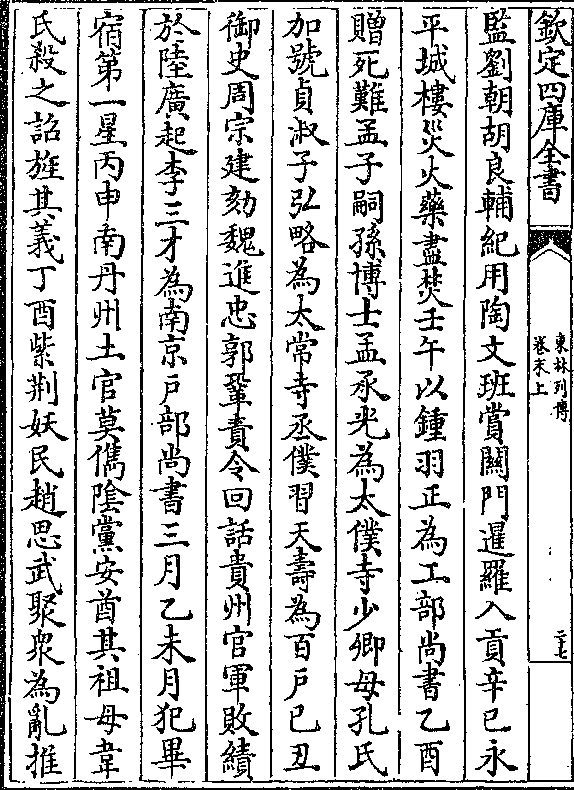 欽定四庫全書
東林列傳
卷末上
二七
監劉朝胡良輔紀用陶文班賞關門暹羅入貢辛巳永
平城樓災火藥盡焚壬午以鍾羽正為工部尚書乙酉
贈死難孟子嗣孫博士孟承光為太僕寺少卿母孔氏
加號貞淑子弘略為太常寺丞僕習天壽為百戶已丑
御史周宗建劾魏進忠郭鞏責令回話貴州官軍敗績
於陸廣起李三才為南京戶部尚書三月乙未月犯畢
宿第一星丙申南丹州土官莫儁陰黨安酋其祖母韋
氏殺之詔旌其義丁酉紫荆妖民趙思武聚衆為亂推